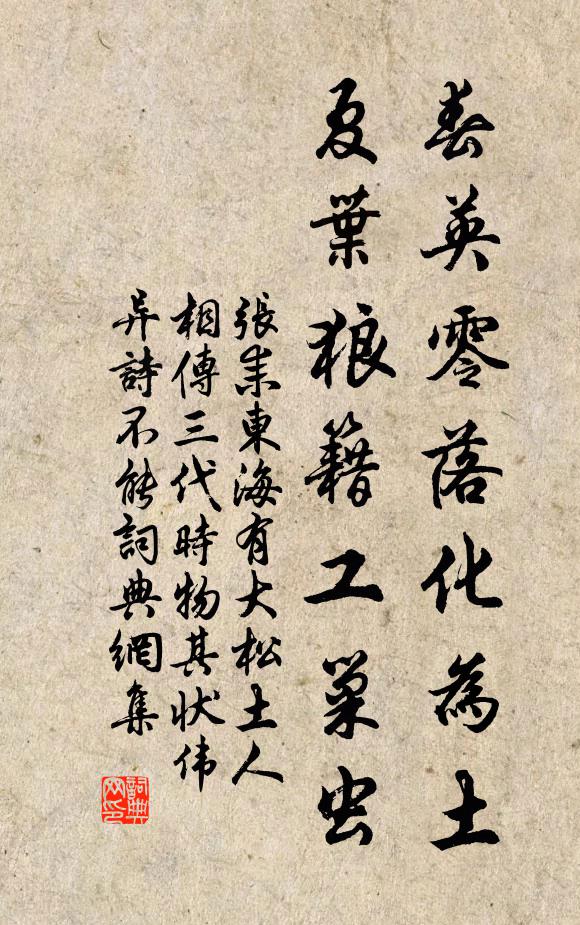 春英零落化為土
夏葉狼籍工巢虫
張耒東海有大松土人
相傳三代時物其狀伟
异詩不能詞典網集
詞典
网印